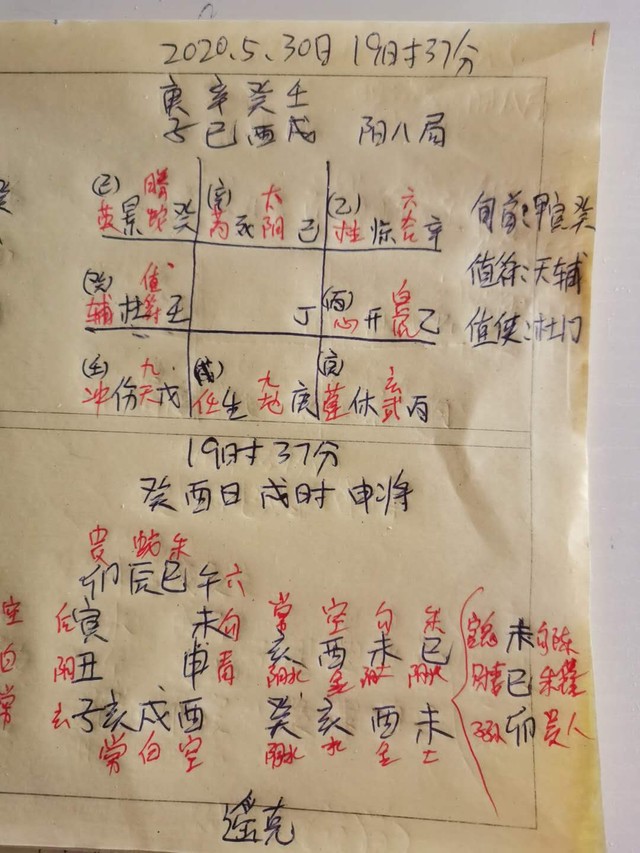 2020.5.30日 19时37分
1
庚 辛 癸 壬
子 巳 酉 戌 阳八局
(己) 螣 (辛) 太 (乙) 六 旬首:甲寅癸
英景蛇癸 芮死阳己 柱惊合辛
(癸) 值 (丙) 白 值符:天辅
辅杜符壬 丁 心开虎乙 值使:杜门
(壬) 九 (戊) 九 (庚) 玄
冲伤天戊 任生地庚 蓬休武丙
19时37分
癸酉日 戌时 申将
贵 蛇 朱
卯辰巳午六
空 后寅 未勾 常 空 勾 朱
白 阴丑 申青 亥 酉 未 巳
常 玄子亥戌酉 癸 亥 酉 未
常 白 空 阴水 水 金 土
官鬼 未 勾陈
巳 朱雀
卯 贵人
遥克